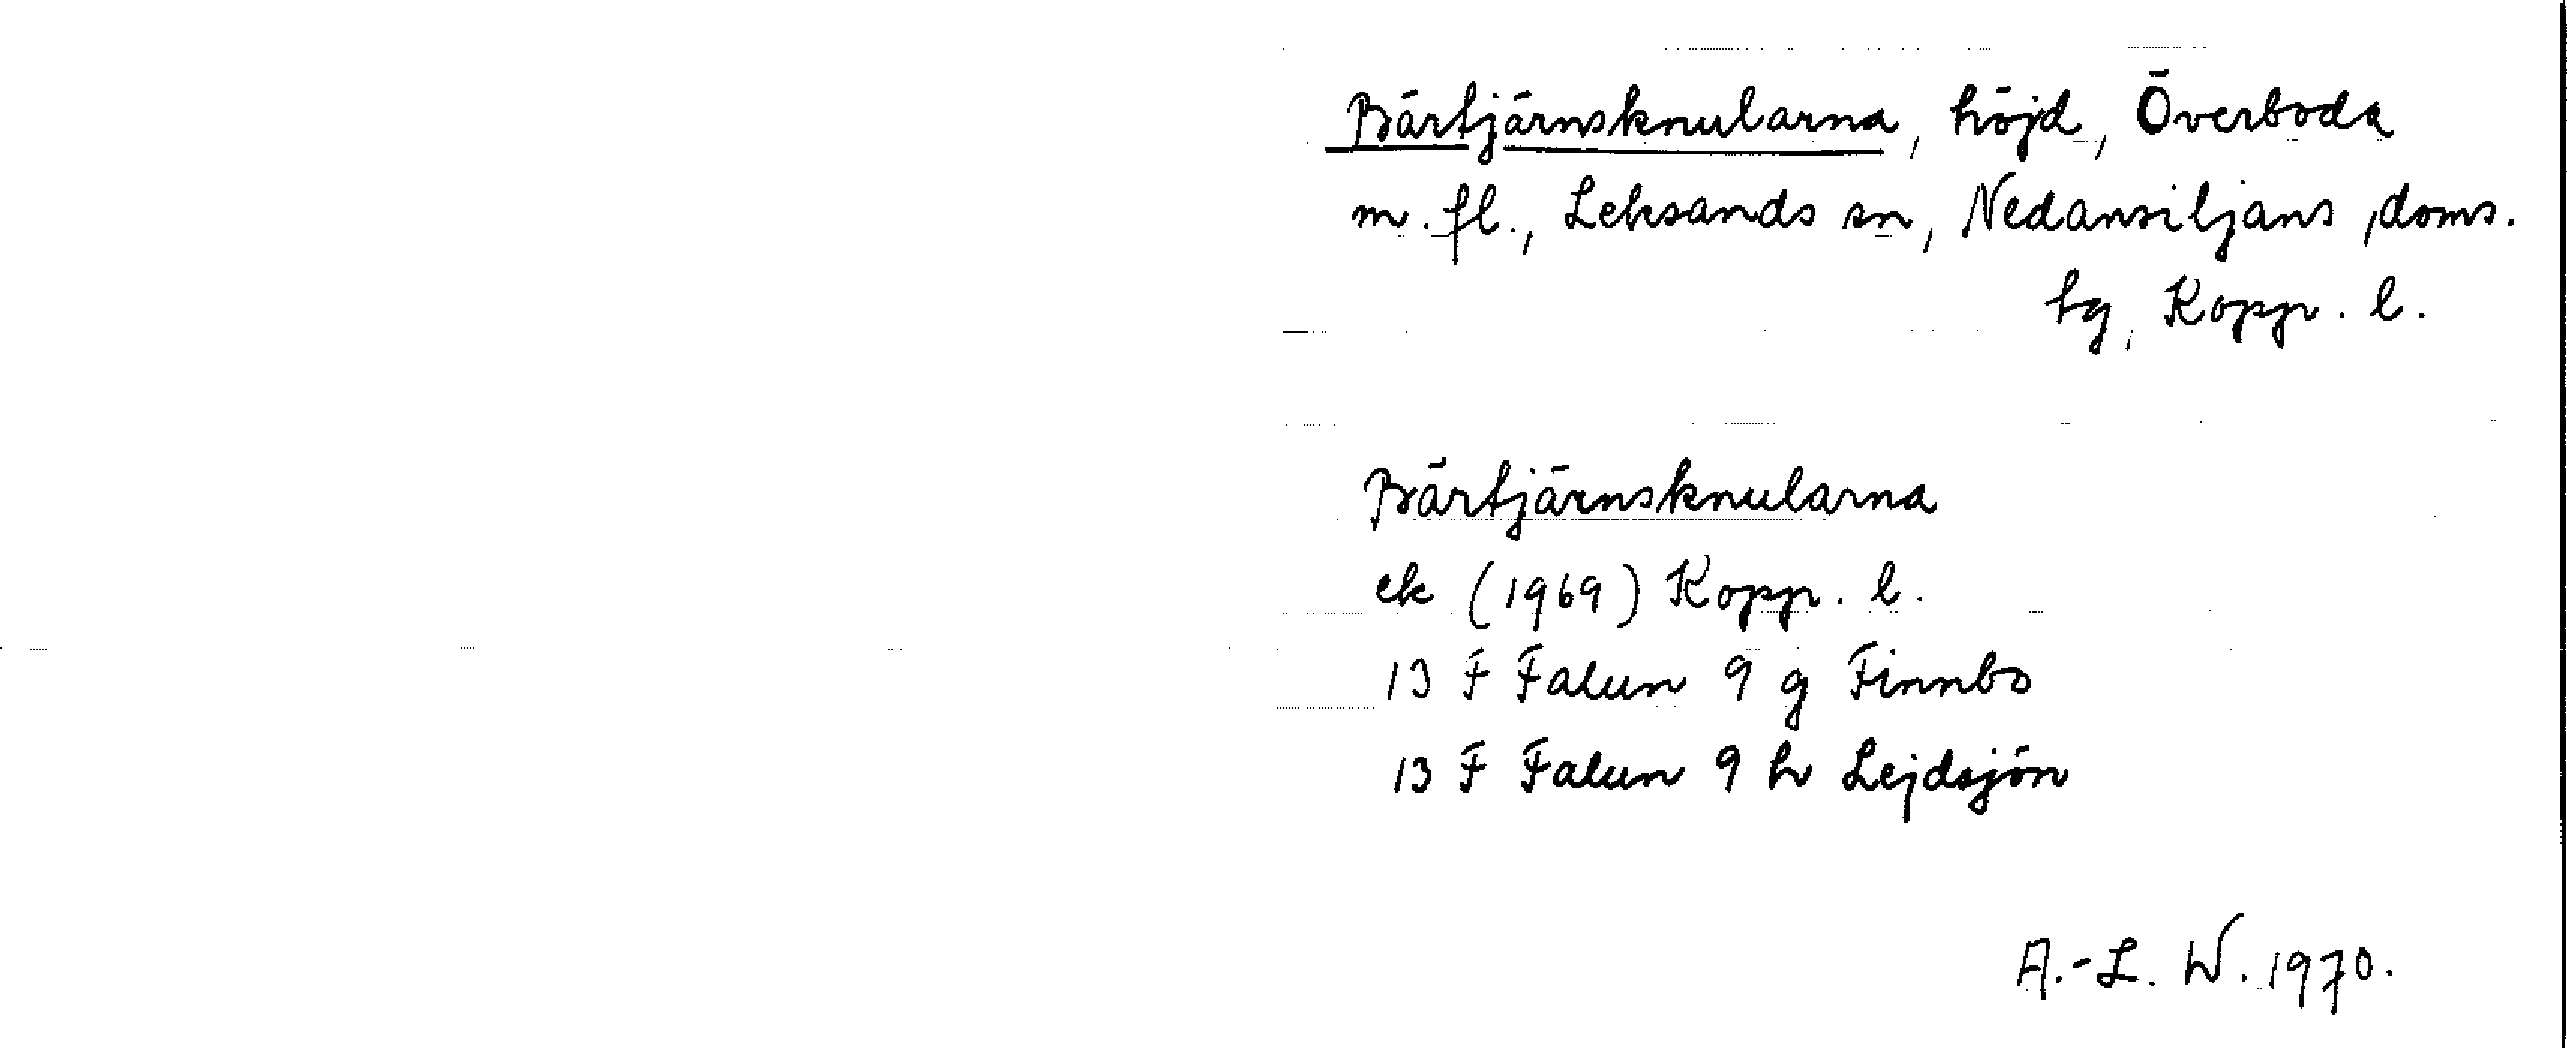 Bärtjärnsknularna, höjd, Överboda
m. fl., Leksands sn, Nedansiljans doms.
hg, Kopp. l.
Bärtjärnsknularna
ek (1969) Kopp. l.
13 F Falun 9 g Finnbo
13 F Falun 9 h Lejdsjön
A.-L. W. 1970.